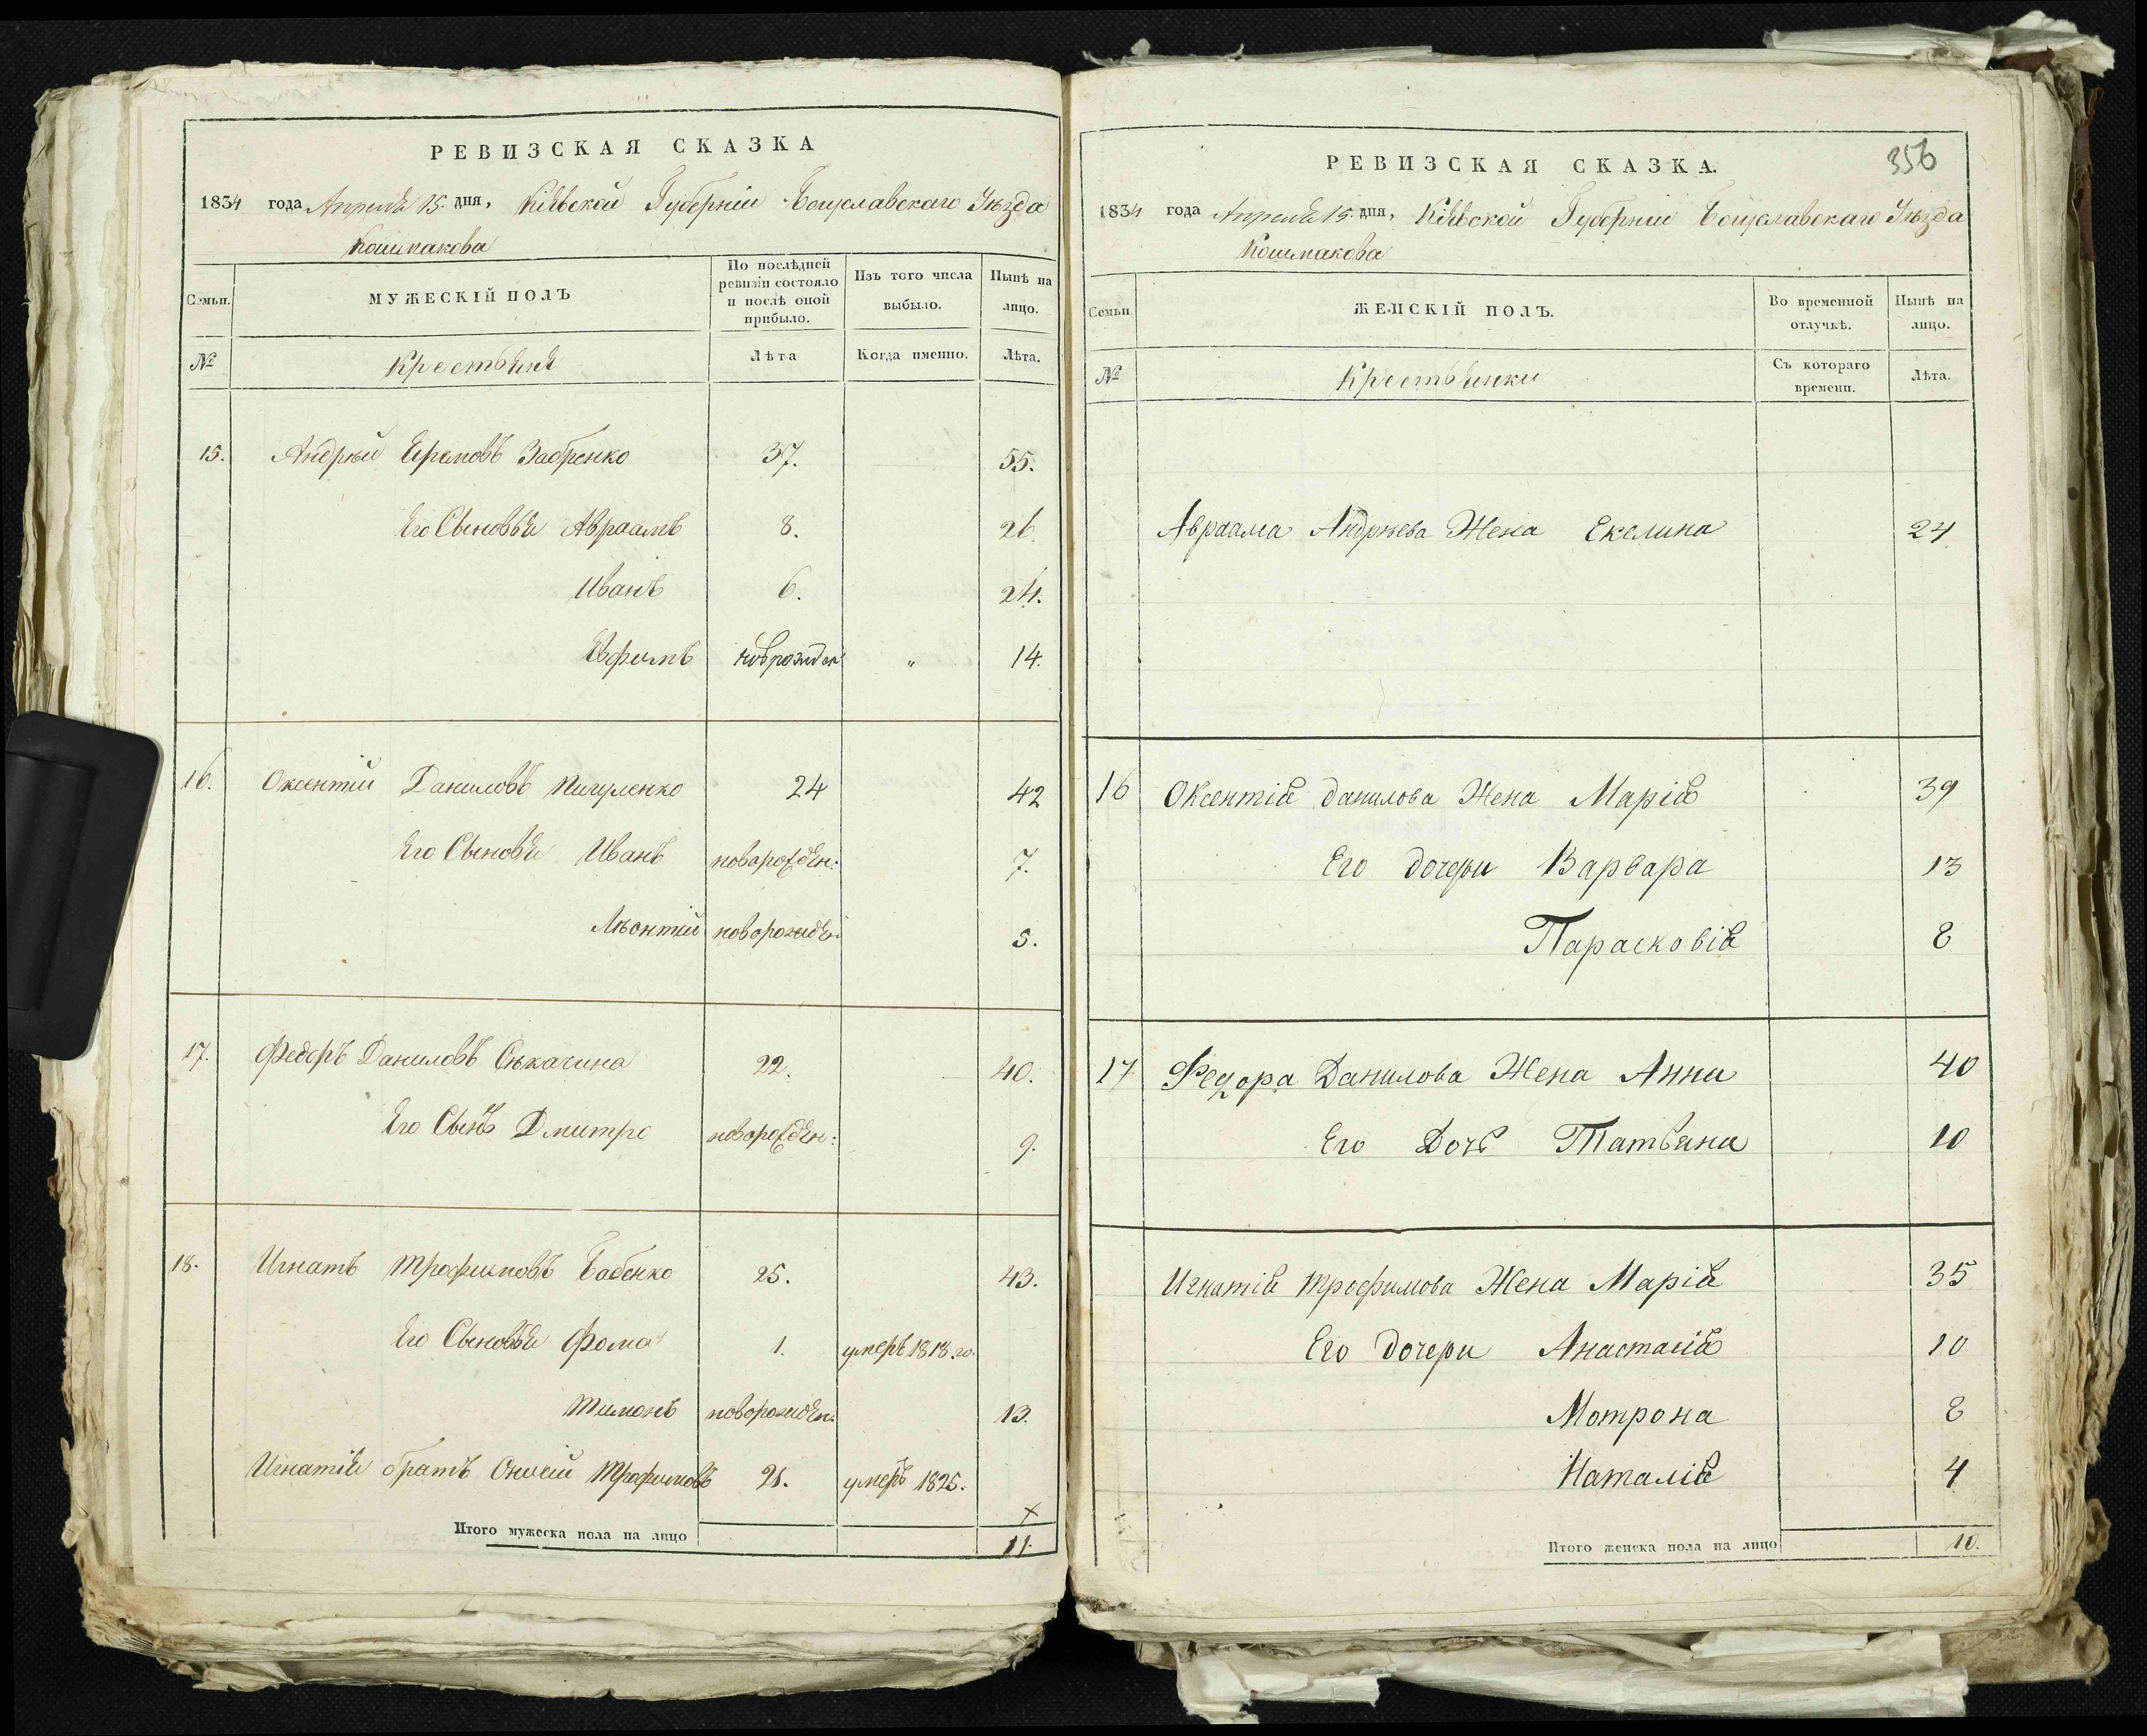 РЕВИЗСКАЯ СКАЗКА
1834 года Апреля 15. дня, Кіевской Губерніи Богуславскаго Уѣзда
Кошмакова
Семьи. МУЖЕСКІЙ ПОЛЪ По послѣдней ревизіи состояло и послѣ оной прибыло. Изъ того числа выбыло. Нынѣ на лицо.
№ Крестьяне Лѣта Когда именно. Лѣта.
15. Андрѣй Ефремовъ 37. 55.
Его Сыновья Авраамъ 8. 26.
Иванъ 6. 24.
Ефимъ новрожден „ 14.
16. Оксентій Даниловъ Пигуленко 24 42
Его Сыновья Иванъ новорожден: 7.
Лѣонтій новорожден. 5.
17. Федоръ Даниловъ Сѣкачина 22. 40.
Его Сынъ Дмитро новорожден: 9.
18. Игнатъ Трофимовъ Бабенко 25. 43.
Его Сыновья Фома 1. умеръ 1818. го.
Тимонъ новорожден. 13.
Игнатія братъ Трофимовъ 21. умеръ 1825.
Итого мужеска пола на лицо 11.
356
РЕВИЗСКАЯ СКАЗКА.
1834 года Апреля 15. дня, Кіевской Губерніи Богуславскаго Уѣзда
Кошмакова
Семьи ЖЕНСКІЙ ПОЛЪ. Во временной отлучкѣ. Нынѣ на лицо.
№ Крестьянки Съ котораго времени. Лѣта.
Авраама Андрѣева Жена Екелина 24
16 Оксентія Данилова Жена Марія 39
Его дочери Варвара 13
Парасковія 8
17 Федора Данилова Жена Анна 40
Его Дочь Татьяна 10
Игнатія Трофимова Жена Марія 35
Его дочери Анастасія 10
Мотрона 8
Наталія 4
Итого женска пола на лицо 10.